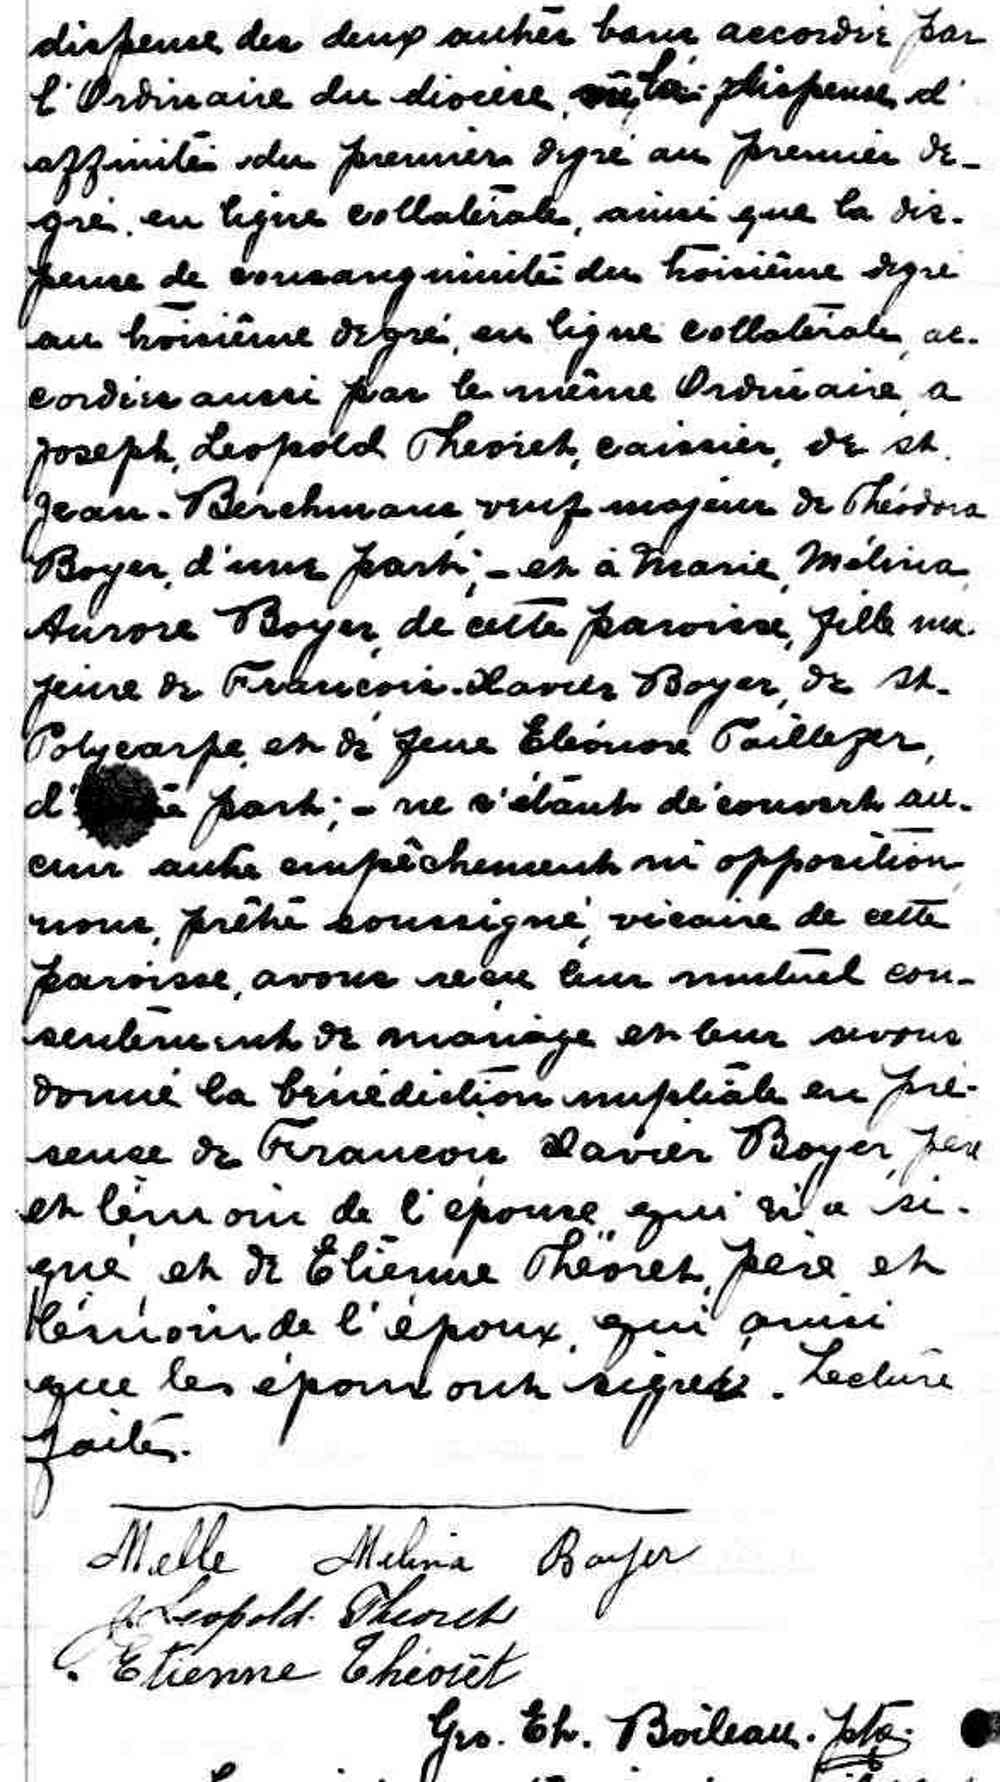 dispense des deux autres bans accordée par
l'Ordinaire du diocèse, vu la dispense d'
affinité du premier degré au premier de-
gré, en ligne collatérale, ainsi que la dis-
pense de consanguinité du troisième degré
au troisième degré, en ligne collatérale, ac-
cordées aussi par le même Ordinaire, a
Joseph, Leopold Theoret, caissier, de st.
Jean-Berchmans, veuf majeur de Théodora
Boyer, d'une part; - et à Marie, Mélina,
Aurore Boyer, de cette paroisse, fille ma-
jeure de François-Xavier Boyer, de St-
Polycarpe, et de feue Eléonore Taillefer,
d' part; - ne s'étant découvert au-
cun autre empêchement ni opposition,
nous, prêtre soussigné, vicaire de cette
paroisse, avons reçu leur mutuel con-
sentement de mariage et leur avons
donné la bénédiction nuptiale en pré-
sence de François Xavier Boyer, père
et témoin de l'épouse, qui n'a si-
gné, et de Etienne Théoret, père et
témoin de l'époux, qui ainsi
que les époux ont signé. Lecture
faite.
Melle Melina Boyer
J. Leopold Theoret
Etienne Théorêt
Geo. Et. Boileau. ptre.